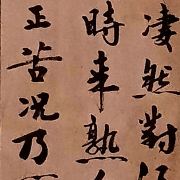 凄然對
時来熟
正苦况乃